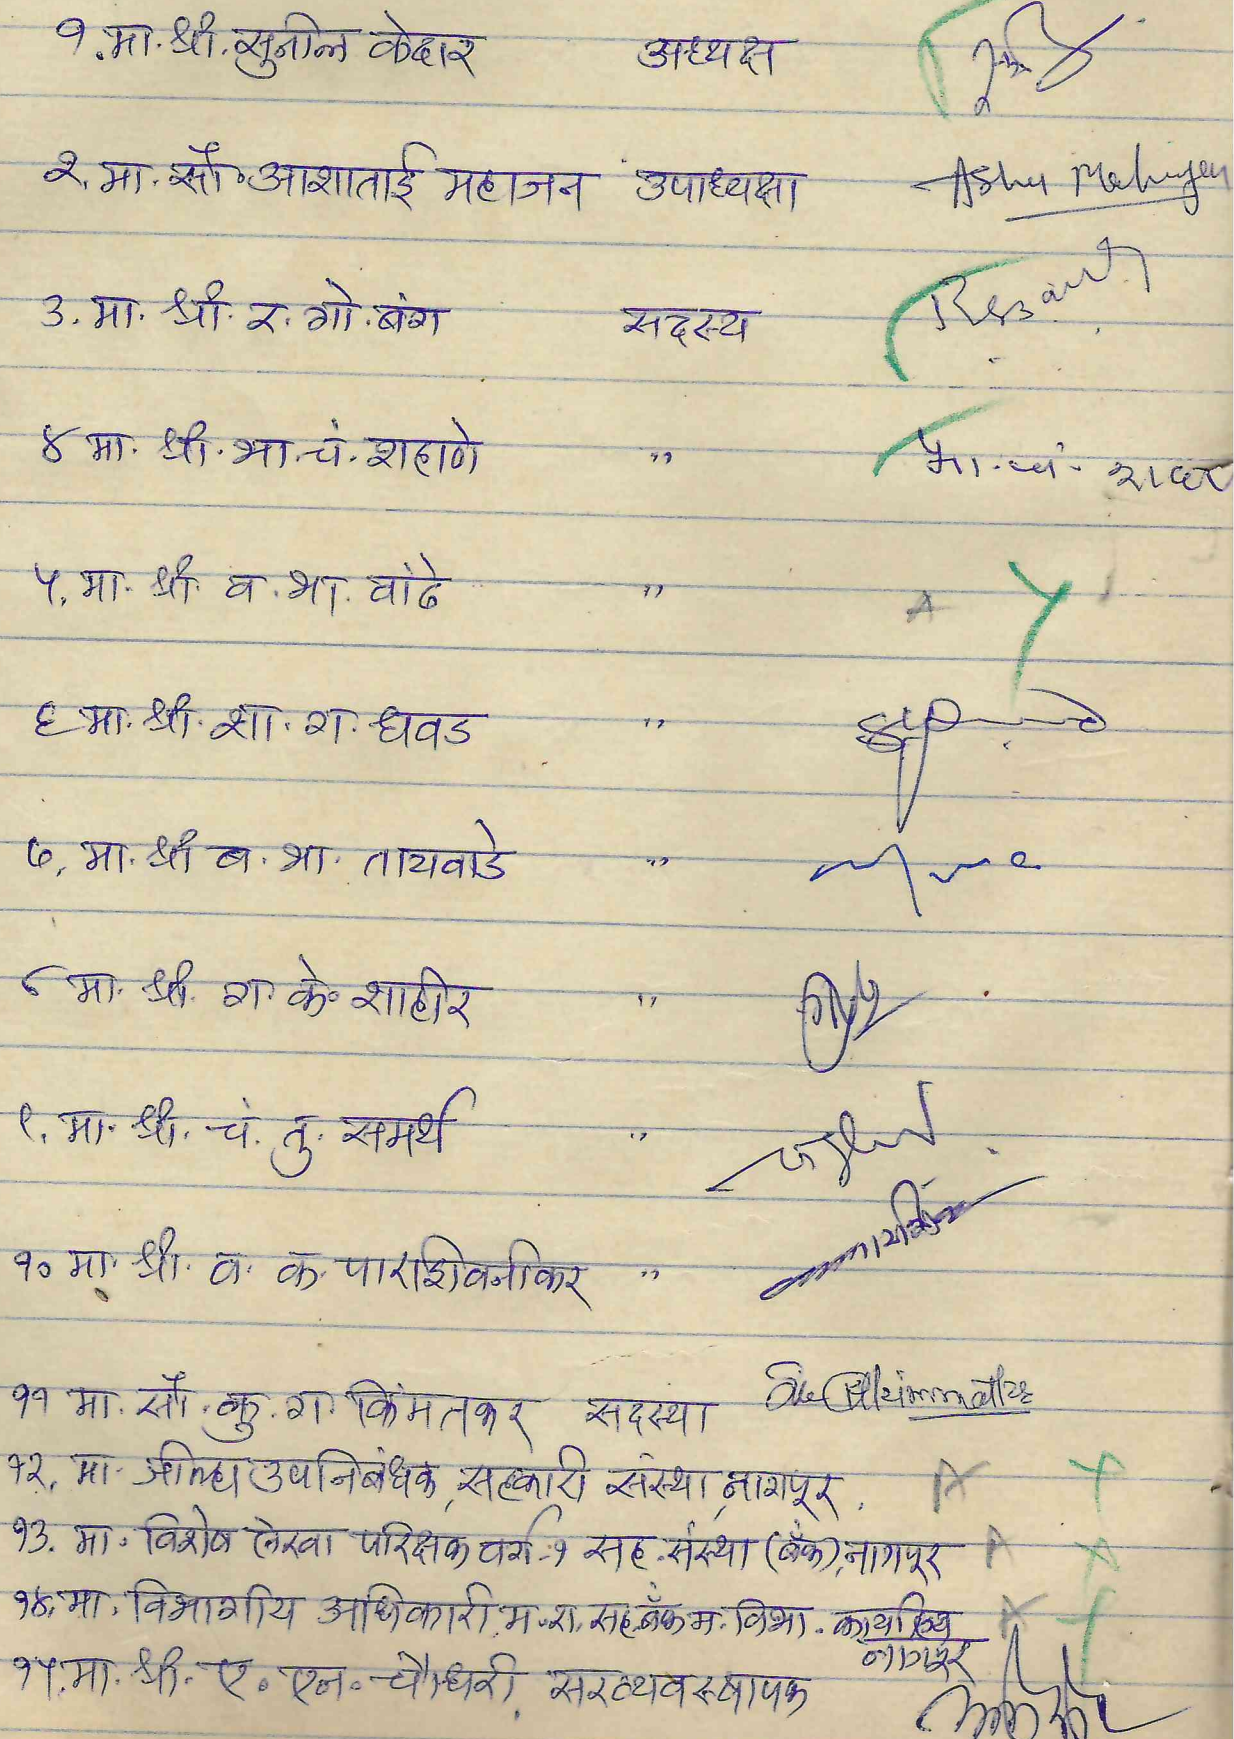 १. मा. श्री. सुनील केदार अध्यक्ष
२. मा. सौ. आशाताई महाजन उपाध्यक्षा Asha Mahajan
३. मा. श्री. र. गो. बंग सदस्य
४ मा. श्री. भा. चं. शहाणे " भा. चं. शहाणे
५. मा. श्री. व. भा. वांढे " A
६ मा. श्री. शा. रा. धवड "
७. मा. श्री ब. भा. तायवाडे "
८ मा. श्री. रा. के. शाहीर "
९. मा. श्री. चं. तु. समर्थ "
१० मा. श्री. व. क. पाराशिवनीकर "
११ मा. सौ. कु. रा. किंमतकर सदस्या
१२. मा. जिल्हा उपनिबंधक, सहकारी संस्था, नागपूर. A
१३. मा. विशेष लेखा परिक्षक वर्ग-१ सह. संस्था (बँक), नागपूर A
१४. मा. विभागीय अधिकारी, म. रा. सह. बँक म. विभा. कार्यालय A
नागपूर
१५. मा. श्री. ए. एन. चौधरी, सरव्यवस्थापक